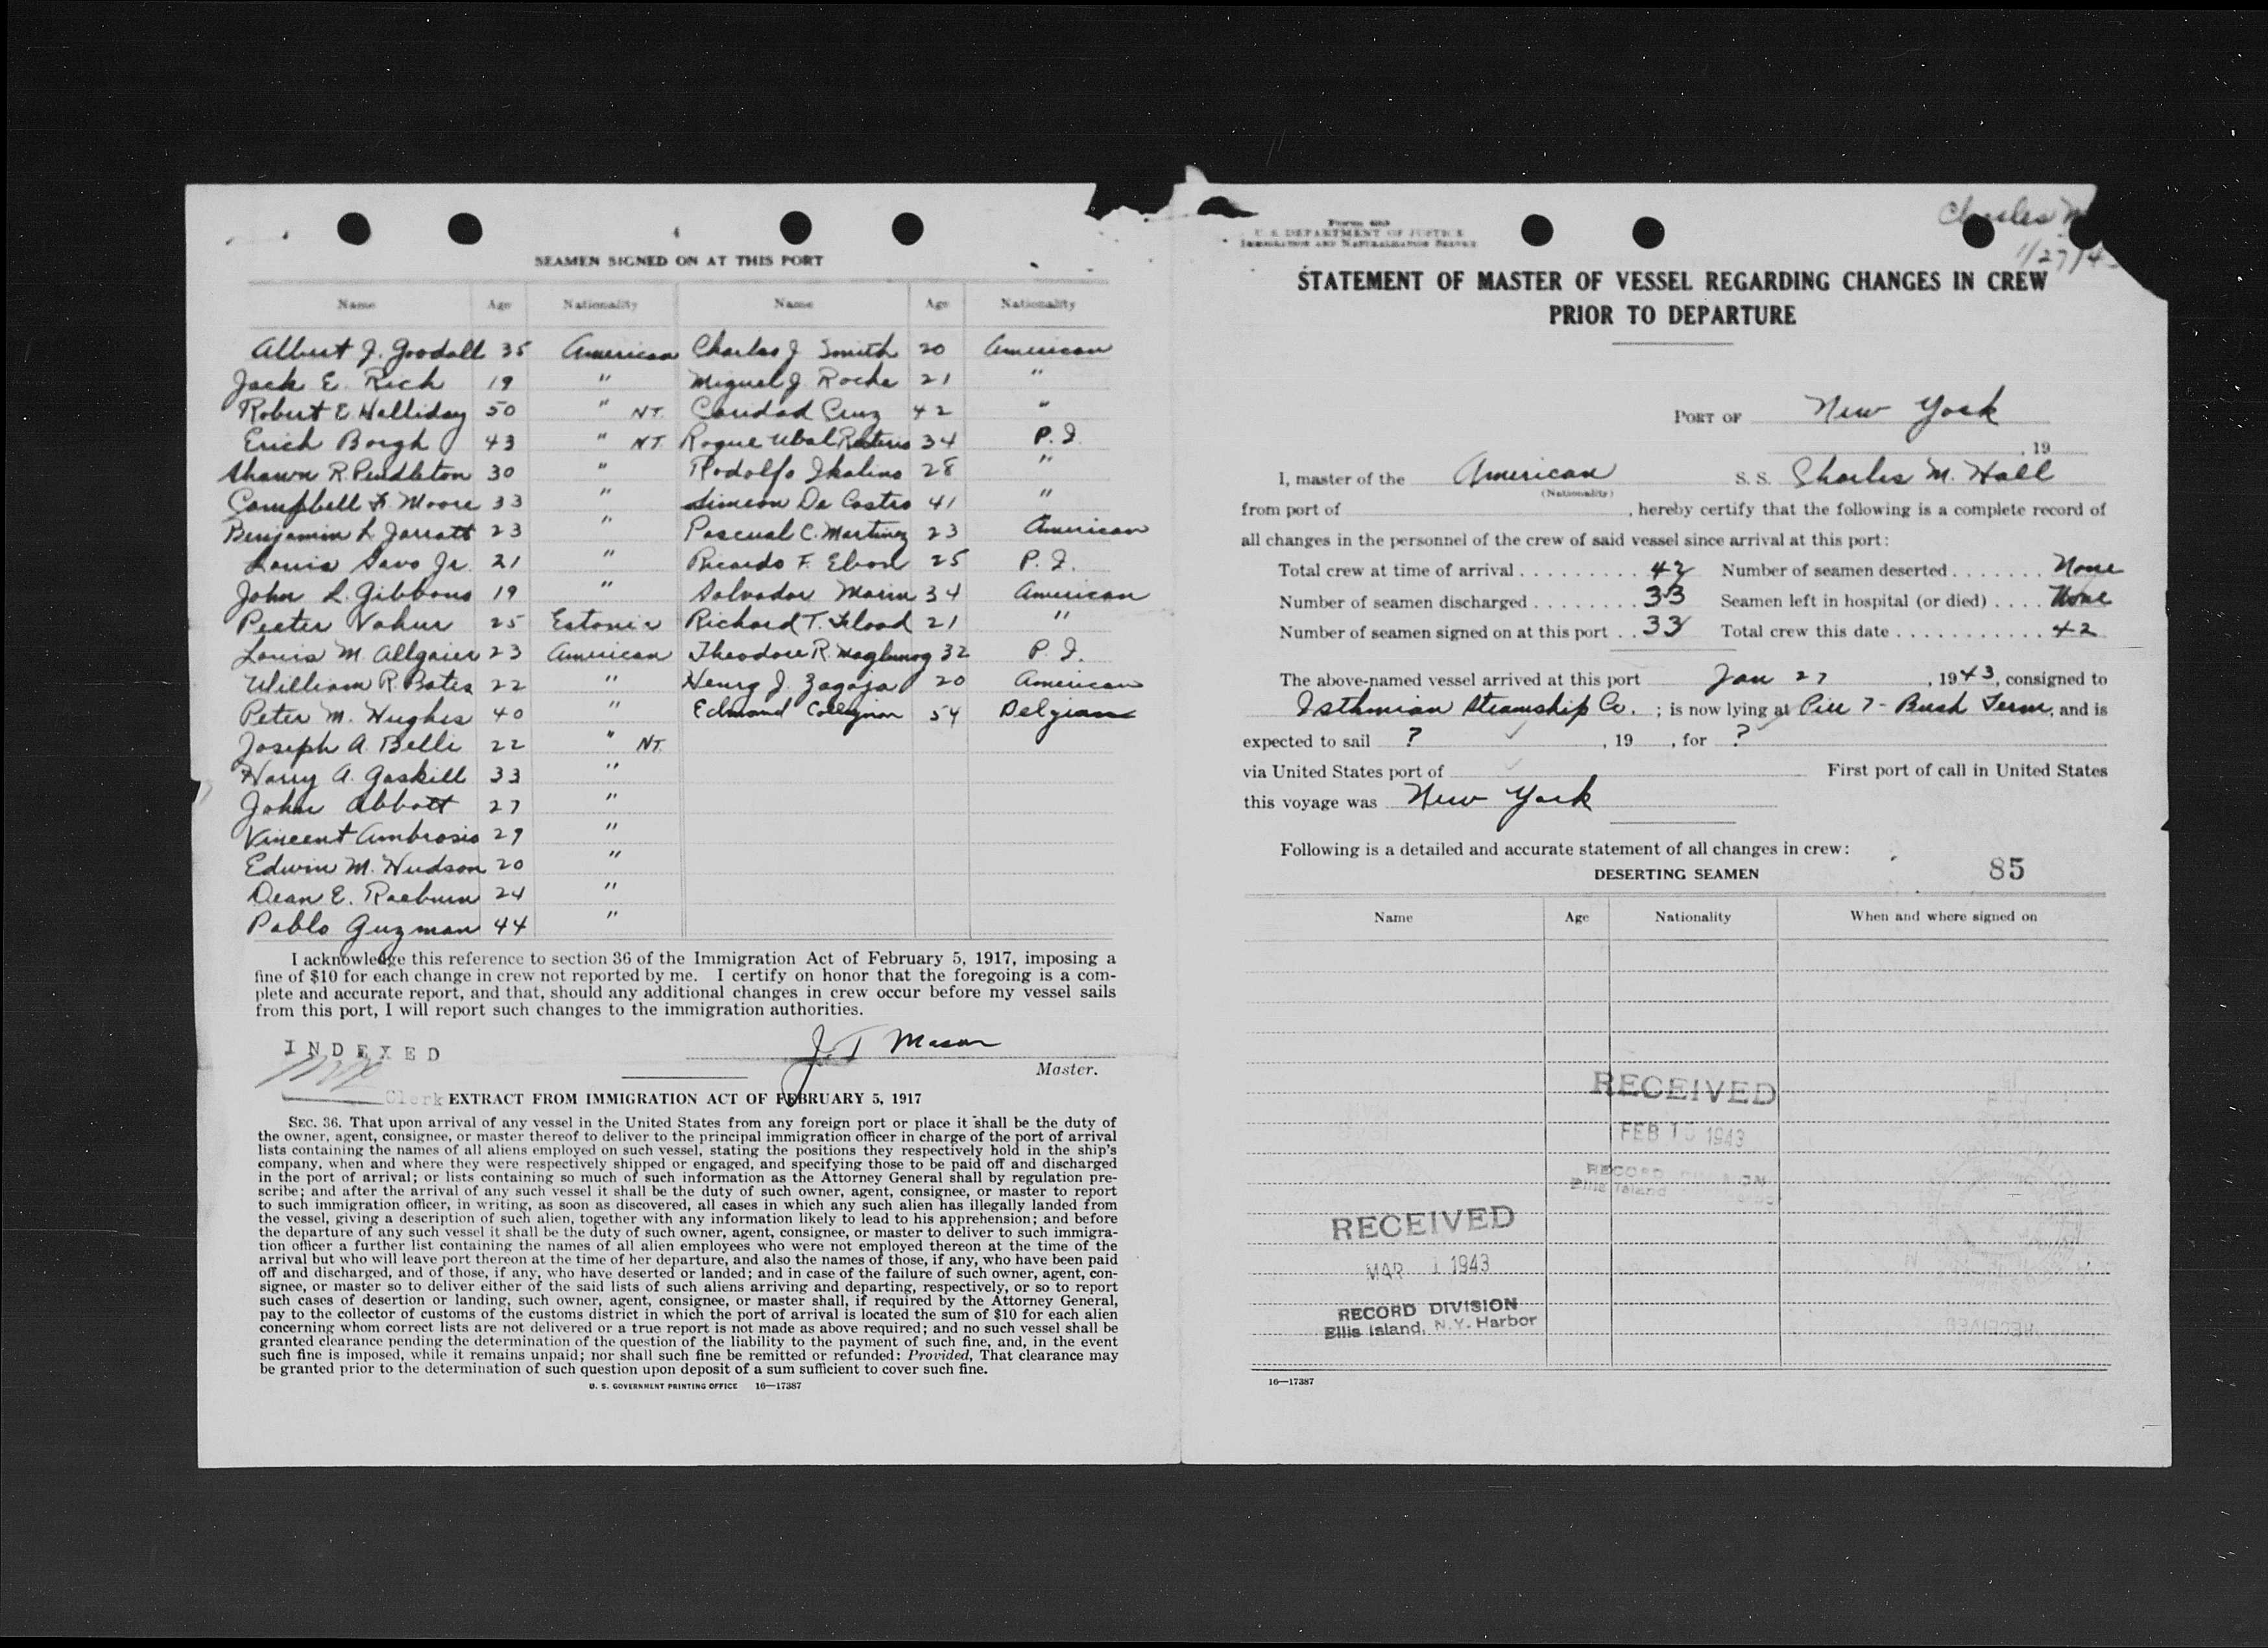 SEAMEN SIGNED ON AT THIS PORT
Name Age Nationality Name Age Nationality
Albert J. Goodall 35 American Charles J Smith 20 American
Jack E. Rich 19 " Miguel J Roche 21 "
Robert E. Halliday 50 " NT. Caridad Cruz 42 "
Erich Borgh 43 " NT. Roque Ubal 34 P. I.
Shawn R. Pendleton 30 " Rodolfo 28 "
Campbell F. Moore 33 " Simeon De Castro 41 "
Benjamin L Jarratt 23 " Pascual C. Martinez 23 American
Louis Savo Jr. 21 " Ricardo F. 25 P. I.
John L. Gibbons 19 " Salvador Marin 34 American
Peeter Vahur 25 Estonia Richard T. Flood 21 "
Louis M. Allgaier 23 American Theodore R. 32 P. I.
William R. Bates 22 " Henry J. Zagaja 20 American
Peter M. Hughes 40 " Edmond Collignon 54 Belgian
Joseph A. Belli 22 " NT.
Harry A. Gaskill 33 "
John Abbott 27 "
Vincent Ambrosio 29 "
Edwin M. Hudson 20 "
Dean E. Raeburn 24 "
Pablo Guzman 44 "
I acknowledge this reference to section 36 of the Immigration Act of February 5, 1917, imposing a
fine of $10 for each change in crew not reported by me. I certify on honor that the foregoing is a com-
plete and accurate report, and that, should any additional changes in crew occur before my vessel sails
from this port, I will report such changes to the immigration authorities.
INDEXED
J. T Mason
Master.
Clerk
EXTRACT FROM IMMIGRATION ACT OF FEBRUARY 5, 1917
SEC. 36. That upon arrival of any vessel in the United States from any foreign port or place it shall be the duty of
the owner, agent, consignee, or master thereof to deliver to the principal immigration officer in charge of the port of arrival
lists containing the names of all aliens employed on such vessel, stating the positions they respectively hold in the ship's
company, when and where they were respectively shipped or engaged, and specifying those to be paid off and discharged
in the port of arrival; or lists containing so much of such information as the Attorney General shall by regulation pre-
scribe; and after the arrival of any such vessel it shall be the duty of such owner, agent, consignee, or master to report
to such immigration officer, in writing, as soon as discovered, all cases in which any such alien has illegally landed from
the vessel, giving a description of such alien, together with any information likely to lead to his apprehension; and before
the departure of any such vessel it shall be the duty of such owner, agent, consignee, or master to deliver to such immigra-
tion officer a further list containing the names of all alien employees who were not employed thereon at the time of the
arrival but who will leave port thereon at the time of her departure, and also the names of those, if any, who have been paid
off and discharged, and of those, if any, who have deserted or landed; and in case of the failure of such owner, agent, con-
signee, or master so to deliver either of the said lists of such aliens arriving and departing, respectively, or so to report
such cases of desertion or landing, such owner, agent, consignee, or master shall, if required by the Attorney General,
pay to the collector of customs of the customs district in which the port of arrival is located the sum of $10 for each alien
concerning whom correct lists are not delivered or a true report is not made as above required; and no such vessel shall be
granted clearance pending the determination of the question of the liability to the payment of such fine, and, in the event
such fine is imposed, while it remains unpaid; nor shall such fine be remitted or refunded: Provided, That clearance may
be granted prior to the determination of such question upon deposit of a sum sufficient to cover such fine.
U. S. GOVERNMENT PRINTING OFFICE 16—17387
U. S. DEPARTMENT OF JUSTICE
IMMIGRATION AND NATURALIZATION SERVICE
Charles M
1/27/4
STATEMENT OF MASTER OF VESSEL REGARDING CHANGES IN CREW
PRIOR TO DEPARTURE
PORT OF New York
, 19
I, master of the American S. S. Charles M. Hall
(Nationality)
from port of , hereby certify that the following is a complete record of
all changes in the personnel of the crew of said vessel since arrival at this port:
Total crew at time of arrival . . . . . . . . . 42 Number of seamen deserted . . . . . . . None
Number of seamen discharged . . . . . . . . 33 Seamen left in hospital (or died) . . . . None
Number of seamen signed on at this port . . 33 Total crew this date . . . . . . . . . . . . 42
The above-named vessel arrived at this port Jan 27 , 1943, consigned to
Isthmian Steamship Co. ; is now lying at Pier 7 - Bush Term, and is
expected to sail ? , 19 , for ?
via United States port of First port of call in United States
this voyage was New York
Following is a detailed and accurate statement of all changes in crew:
DESERTING SEAMEN 85
Name Age Nationality When and where signed on
RECEIVED
FEB 1 1943
RECORD DIVISION
Ellis Island
RECEIVED
MAR 1 1943
RECORD DIVISION
Ellis Island, N.Y. Harbor
16—17387